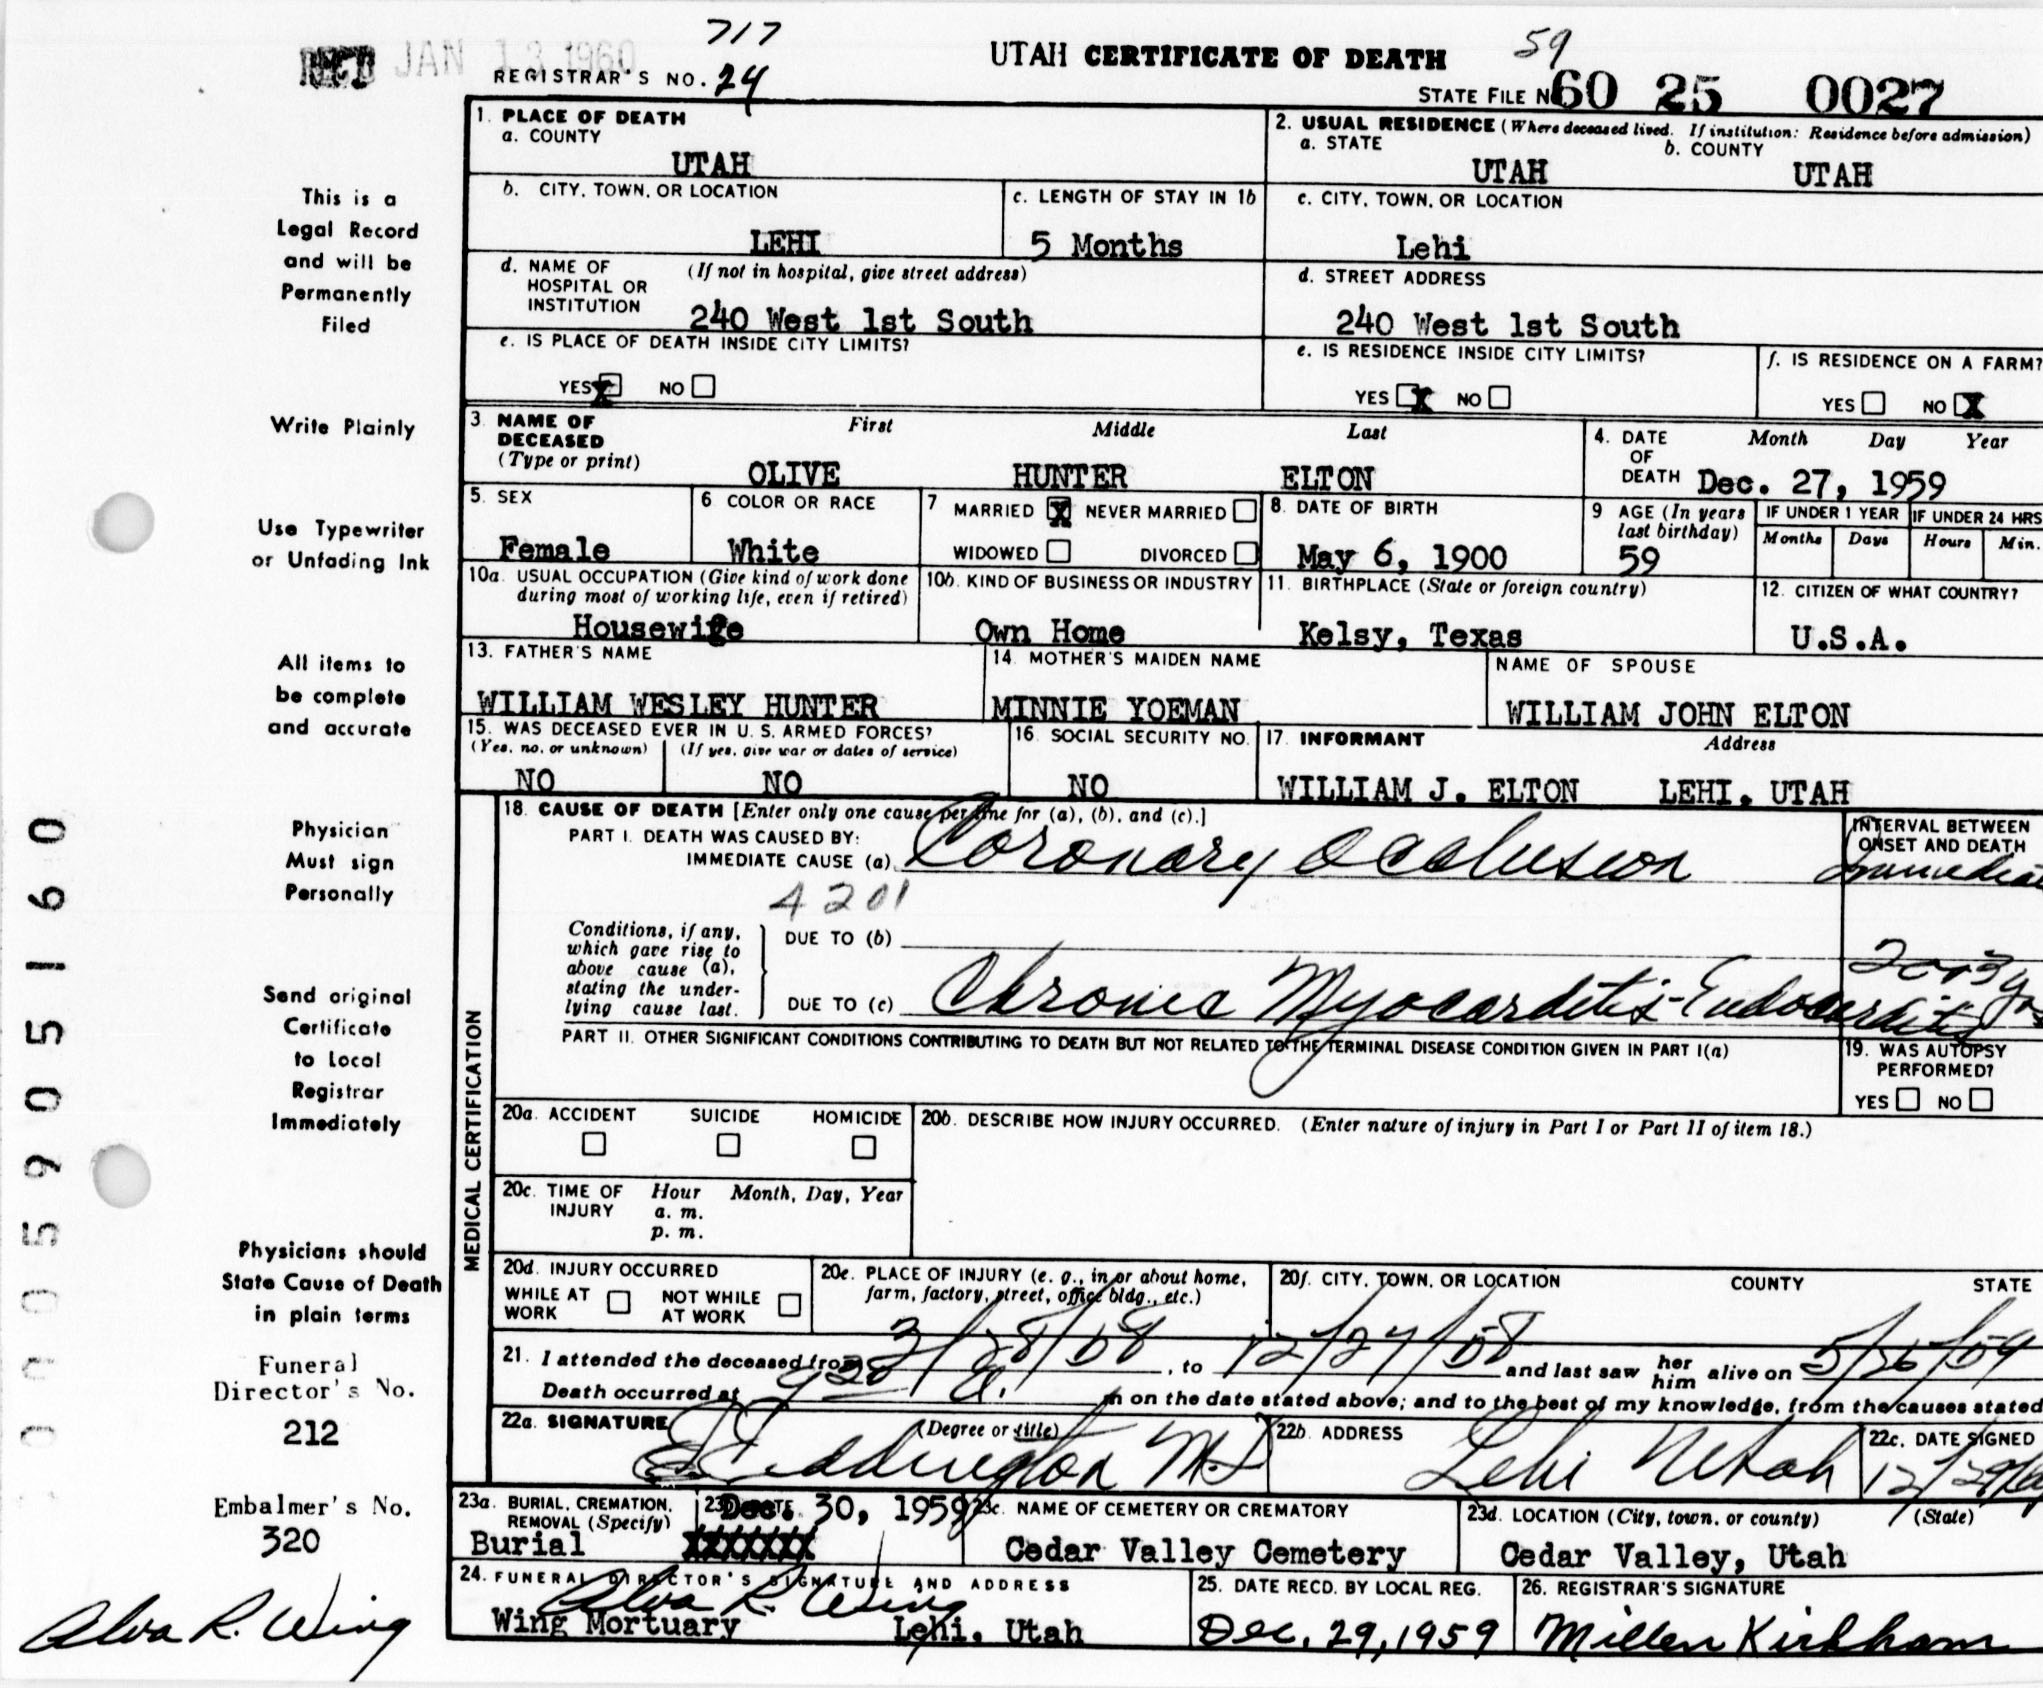 REC'D JAN 13 1960
717
REGISTRAR'S NO. 24
UTAH CERTIFICATE OF DEATH
59
STATE FILE NO 60 25 0027
This is a
Legal Record
and will be
Permanently
Filed
Write Plainly
Use Typewriter
or Unfading Ink
All items to
be complete
and accurate
Physician
Must sign
Personally
Send original
Certificate
to Local
Registrar
Immediately
Physicians should
State Cause of Death
in plain terms
Funeral
Director's No.
212
Embalmer's No.
320
Alva R. Wing
0005905160
1. PLACE OF DEATH
a. COUNTY
UTAH
2. USUAL RESIDENCE (Where deceased lived. If institution: Residence before admission)
a. STATE b. COUNTY
UTAH UTAH
b. CITY, TOWN, OR LOCATION
LEHI
c. LENGTH OF STAY IN 1b
5 Months
c. CITY, TOWN, OR LOCATION
Lehi
d. NAME OF (If not in hospital, give street address)
HOSPITAL OR
INSTITUTION
240 West 1st South
d. STREET ADDRESS
240 West 1st South
e. IS PLACE OF DEATH INSIDE CITY LIMITS?
YES X NO
e. IS RESIDENCE INSIDE CITY LIMITS?
YES X NO
f. IS RESIDENCE ON A FARM?
YES NO X
3. NAME OF First Middle Last
DECEASED
(Type or print)
OLIVE HUNTER ELTON
4. DATE Month Day Year
OF
DEATH Dec. 27, 1959
5. SEX
Female
6. COLOR OR RACE
White
7 MARRIED X NEVER MARRIED
WIDOWED DIVORCED
8. DATE OF BIRTH
May 6, 1900
9 AGE (In years
last birthday)
59
IF UNDER 1 YEAR
Months Days
IF UNDER 24 HRS
Hours Min.
10a. USUAL OCCUPATION (Give kind of work done
during most of working life, even if retired)
Housewife
10b. KIND OF BUSINESS OR INDUSTRY
Own Home
11. BIRTHPLACE (State or foreign country)
Kelsy, Texas
12. CITIZEN OF WHAT COUNTRY?
U.S.A.
13. FATHER'S NAME
WILLIAM WESLEY HUNTER
14. MOTHER'S MAIDEN NAME
MINNIE YOEMAN
NAME OF SPOUSE
WILLIAM JOHN ELTON
15. WAS DECEASED EVER IN U. S. ARMED FORCES?
(Yes, no, or unknown) (If yes, give war or dates of service)
NO NO
16. SOCIAL SECURITY NO.
NO
17. INFORMANT Address
WILLIAM J. ELTON LEHI, UTAH
MEDICAL CERTIFICATION
18. CAUSE OF DEATH [Enter only one cause per line for (a), (b), and (c).]
PART I. DEATH WAS CAUSED BY:
IMMEDIATE CAUSE (a) Coronary Occlusion
INTERVAL BETWEEN
ONSET AND DEATH
4201
Conditions, if any,
which gave rise to
above cause (a),
stating the under-
lying cause last.
DUE TO (b)
DUE TO (c) Chronic Myocarditis-Endocarditis
PART II. OTHER SIGNIFICANT CONDITIONS CONTRIBUTING TO DEATH BUT NOT RELATED TO THE TERMINAL DISEASE CONDITION GIVEN IN PART I(a)
19. WAS AUTOPSY
PERFORMED?
YES NO
20a. ACCIDENT SUICIDE HOMICIDE
20b. DESCRIBE HOW INJURY OCCURRED. (Enter nature of injury in Part I or Part II of item 18.)
20c. TIME OF Hour Month, Day, Year
INJURY a. m.
p. m.
20d. INJURY OCCURRED
WHILE AT NOT WHILE
WORK AT WORK
20e. PLACE OF INJURY (e. g., in or about home,
farm, factory, street, office bldg., etc.)
20f. CITY, TOWN, OR LOCATION COUNTY STATE
21. I attended the deceased from 3/28/58, to 12/24/58 and last saw her him alive on 5/26/59
Death occurred at 920 A. m on the date stated above; and to the best of my knowledge, from the causes stated
22a. SIGNATURE (Degree or title)
Eddington M.D
22b. ADDRESS
Lehi Utah
22c. DATE SIGNED
12/29/
23a. BURIAL, CREMATION,
REMOVAL (Specify)
Burial
23b. DATE
Dec. 30, 1959
23c. NAME OF CEMETERY OR CREMATORY
Cedar Valley Cemetery
23d. LOCATION (City, town, or county) (State)
Cedar Valley, Utah
24. FUNERAL DIRECTOR'S SIGNATURE AND ADDRESS
Alva R. Wing
Wing Mortuary Lehi, Utah
25. DATE RECD. BY LOCAL REG.
Dec. 29, 1959
26. REGISTRAR'S SIGNATURE
Millen Kirkham